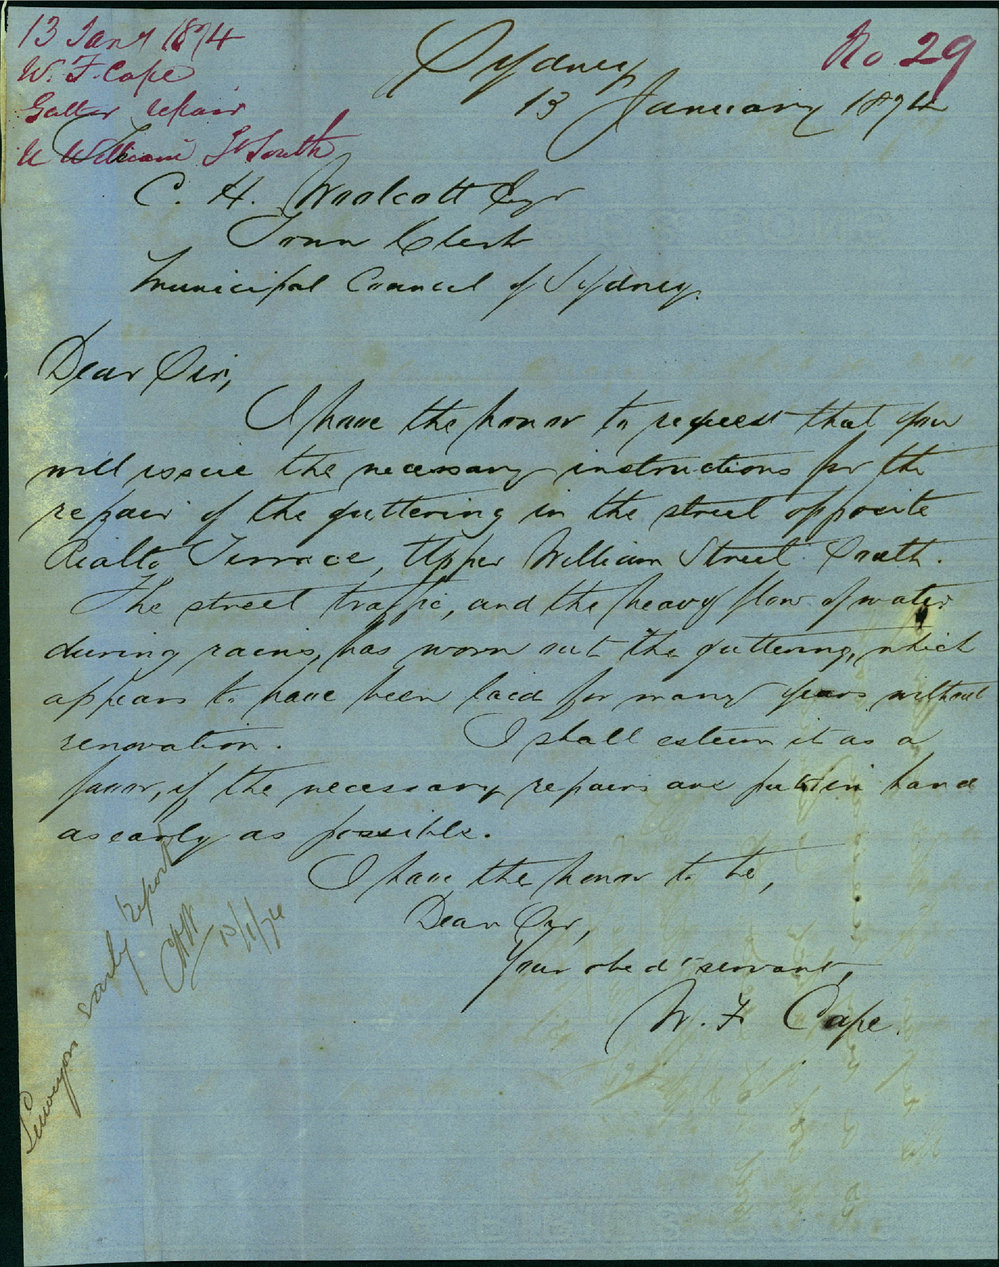 13 Jany 1874
W. F. Cape
Gutter repair
U William St South
No 29
Sydney
13 January 1874
C. H. Woolcott Esqr
Town Clerk
Municipal Council of Sydney.
Dear Sir,
I have the honor to request that you
will issue the necessary instructions for the
repair of the guttering in the street opposite
Rialto Terrace, Upper William Street South.
The street traffic, and the heavy flow of water
during rains, has worn out the guttering, which
appears to have been laid for many years without
renovation. I shall esteem it as a
favor, if the necessary repairs are put in hand
as early as possible.
I have the honor to be,
Dear Sir,
Your obedt servant,
W. F. Cape.
Surveyor early report
CHW
13/1/74